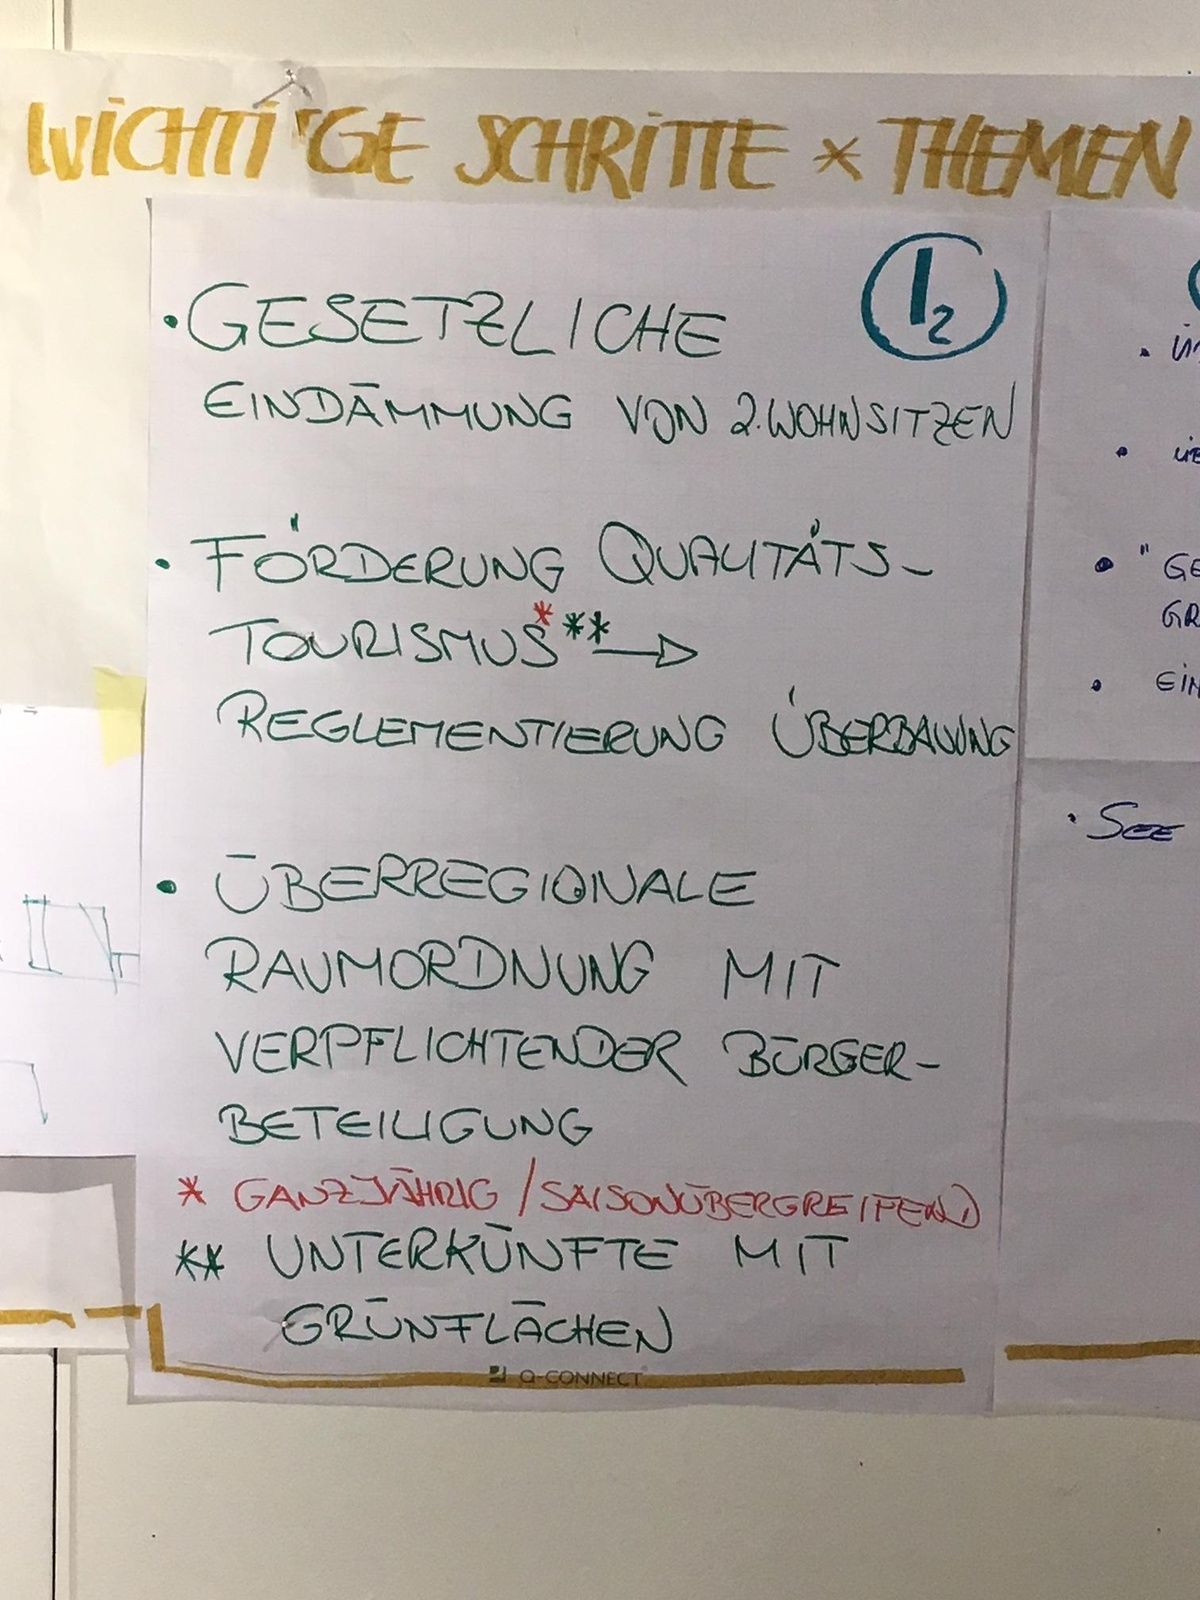 WICHTIGE SCHRITTE * THEMEN
1 2
• GESETZLICHE
EINDÄMMUNG VON 2.WOHNSITZEN
• FÖRDERUNG QUALITÄTS-
TOURISMUS* ** →
REGLEMENTIERUNG ÜBERBAUUNG
• ÜBERREGIONALE
RAUMORDNUNG MIT
VERPFLICHTENDER BÜRGER-
BETEILIGUNG
* GANZJÄHRIG / SAISONÜBERGREIFEND
** UNTERKÜNFTE MIT
GRÜNFLÄCHEN
Q-CONNECT
• "GE
GR
• EIN
• SEE